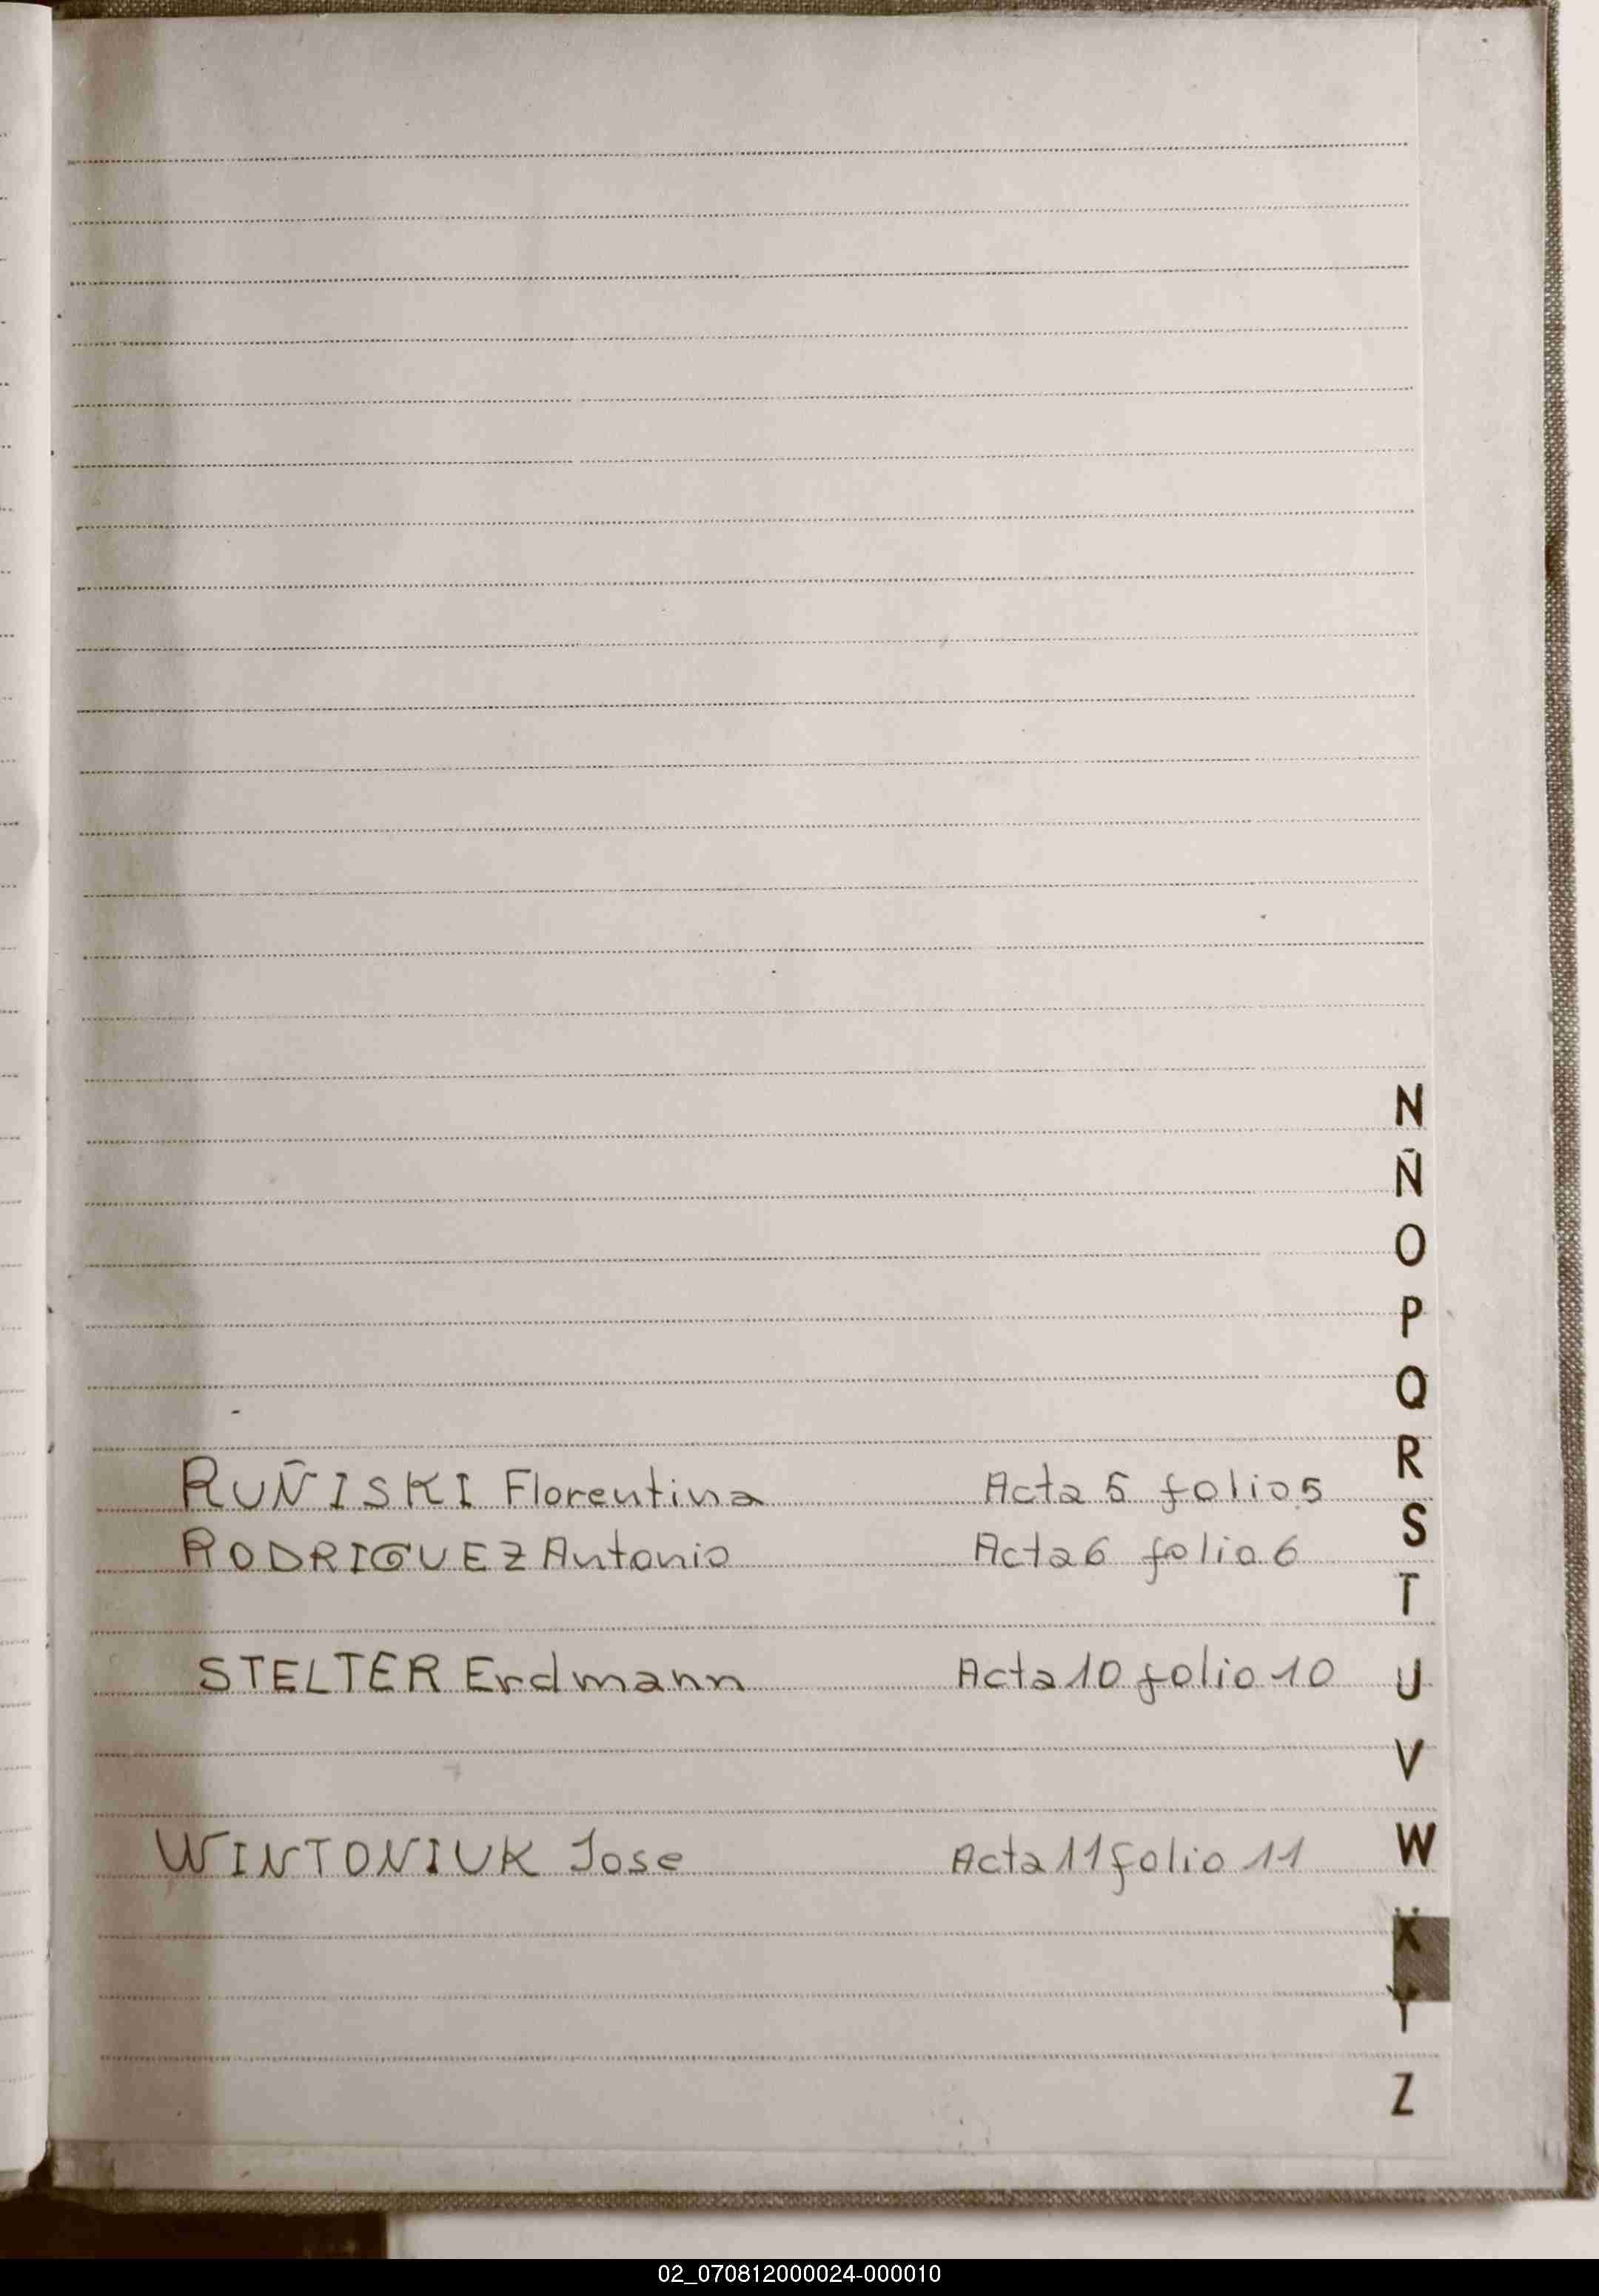 N
Ñ
O
P
Q
R
RUÑISKI Florentina Acta 5 folio 5
S
RODRIGUEZ Antonio Acta 6 folio 6
T
STELTER Erdmann Acta 10 folio 10
U
V
WINTONIUK Jose Acta 11 folio 11
W
X
Y
Z
02_070812000024-000010